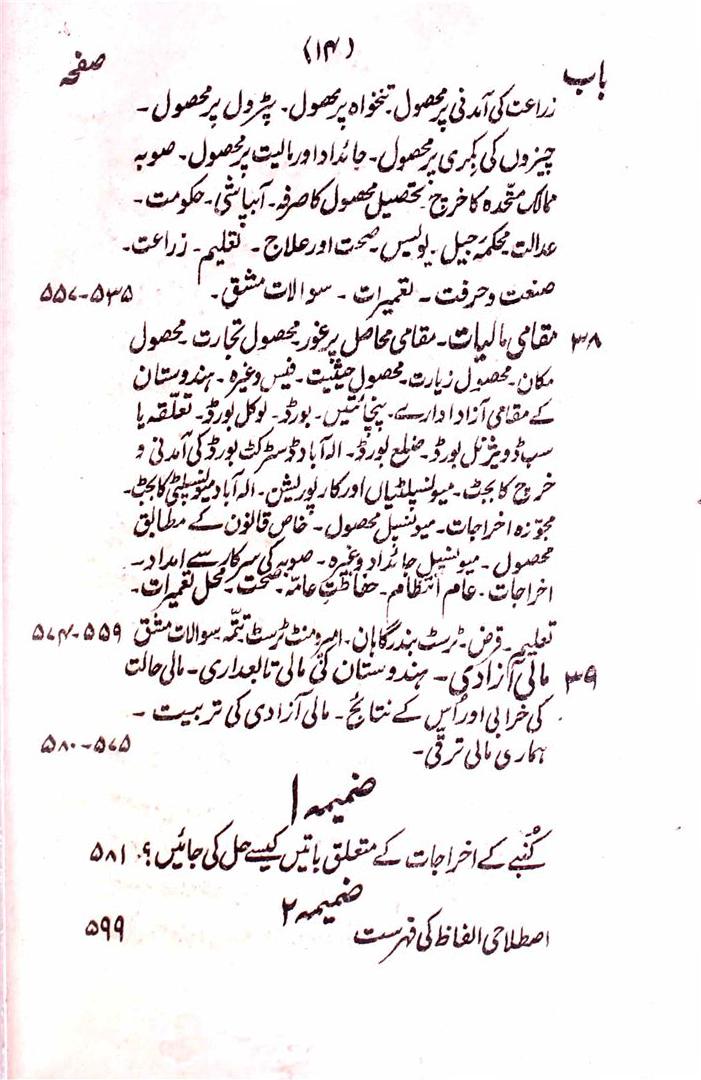 (۱۴)
باب صفحہ
زراعت کی آمدنی پر محصول۔ تنخواہ پر محصول۔ پٹرول پر محصول۔
چیزوں کی بکری پر محصول۔ جائداد اور مالیت پر محصول۔ صوبہ
ممالک متحدہ کا خرچ۔ تحصیل محصول کا صرفہ۔ آبپاشی۔ حکومت۔
عدالت۔ محکمۂ جیل۔ پولیس۔ صحت اور علاج۔ تعلیم۔ زراعت۔
صنعت و حرفت۔ تعمیرات۔ سوالات مشق۔ ۵۳۵-۵۵۷
۳۸ مقامی مالیات۔ مقامی محاصل پر غور۔ محصول تجارت۔ محصول
مکان۔ محصول زیارت۔ محصول حیثیت۔ فیس وغیرہ۔ ہندوستان
کے مقامی آزاد ادارے۔ پنچائتیں۔ بورڈ۔ لوکل بورڈ۔ تعلّقہ یا
سب ڈویژنل بورڈ۔ ضلع بورڈ۔ الہ آباد ڈسٹرکٹ بورڈ کی آمدنی و
خرچ کا بجٹ۔ میونسپلٹیاں اور کارپوریشن۔ الہ آباد میونسپلٹی کا بجٹ۔
مجوّزہ اخراجات۔ میونسپل محصول۔ خاص قانون کے مطابق
محصول۔ میونسپل جائداد وغیرہ۔ صوبہ کی سرکار سے امداد۔
اخراجات۔ عام انتظام۔ حفاظتِ عامّہ۔ صحت۔ محل تعمیرات۔
تعلیم۔ قرض۔ ٹرسٹ بندرگاہان۔ امپرومنٹ ٹرسٹ تتمّہ سوالات مشق ۵۵۹-۵۷۴
۳۹ مالی آزادی۔ ہندوستان کی مالی تابعداری۔ مالی حالت
کی خرابی اور اُس کے نتائج۔ مالی آزادی کی تربیت۔
ہماری مالی ترقّی۔ ۵۷۵-۵۸۰
ضمیمہ ۱
کُنبے کے اخراجات کے متعلق باتیں کیسے حل کی جائیں؟ ۵۸۱
ضمیمہ ۲
اصطلاحی الفاظ کی فہرست ۵۹۹